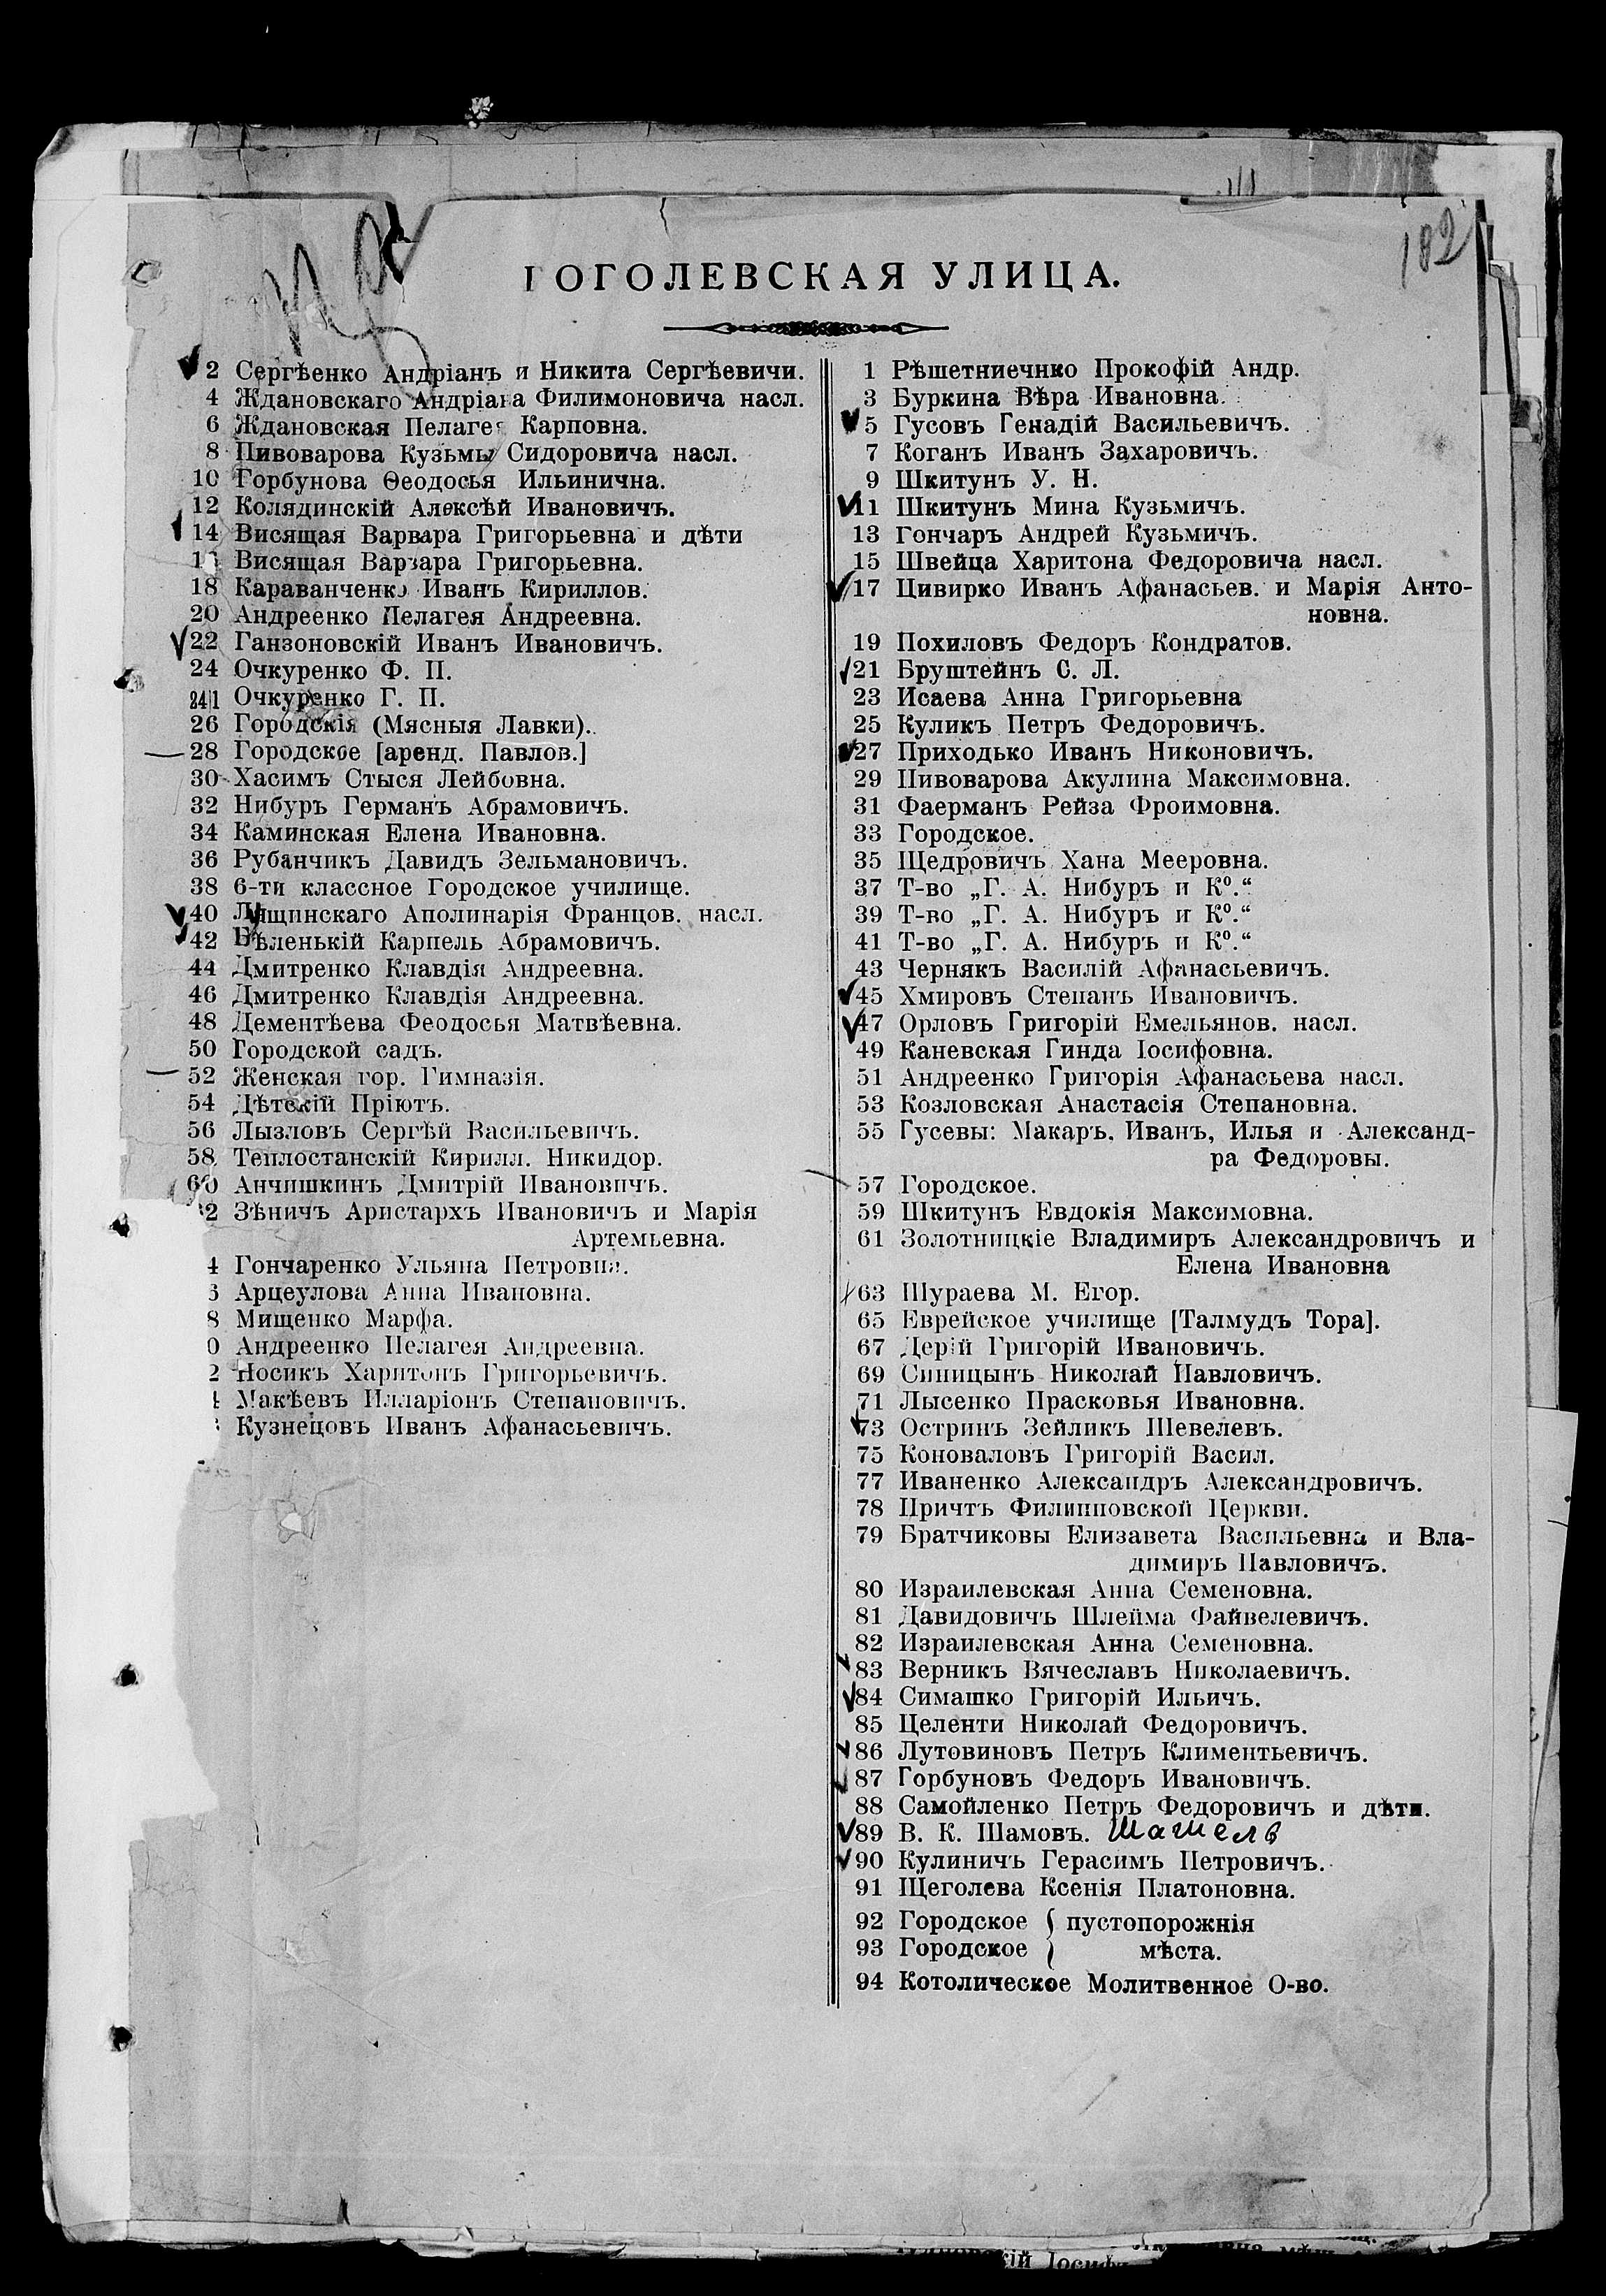 182
ГОГОЛЕВСКАЯ УЛИЦА.
2 Сергѣенко Андріанъ и Никита Сергѣевичи.
4 Ждановскаго Андріана Филимоновича насл.
6 Ждановская Пелагея Карповна.
8 Пивоварова Кузьмы Сидоровича насл.
10 Горбунова Ѳеодосья Ильинична.
12 Колядинскій Алексѣй Ивановичъ.
14 Висящая Варвара Григорьевна и дѣти
1 Висящая Варвара Григорьевна.
18 Караванченко Иванъ Кириллов.
20 Андреенко Пелагея Андреевна.
22 Ганзоновскій Иванъ Ивановичъ.
24 Очкуренко Ф. П.
24|1 Очкуренко Г. П.
26 Городскія (Мясныя Лавки).
28 Городское [аренд. Павлов.]
30 Хасимъ Стыся Лейбовна.
32 Нибуръ Германъ Абрамовичъ.
34 Каминская Елена Ивановна.
36 Рубанчикъ Давидъ Зельмановичъ.
38 6-ти классное Городское училище.
40 Лящинскаго Аполинарія Францов. насл.
42 Бѣленькій Карпель Абрамовичъ.
44 Дмитренко Клавдія Андреевна.
46 Дмитренко Клавдія Андреевна.
48 Дементѣева Феодосья Матвѣевна.
50 Городской садъ.
52 Женская гор. Гимназія.
54 Дѣтскій Пріютъ.
56 Лызловъ Сергѣй Васильевичъ.
58 Теплостанскій Кирилл. Никидор.
60 Анчишкинъ Дмитрій Ивановичъ.
2 Зѣничъ Аристархъ Ивановичъ и Марія
Артемьевна.
4 Гончаренко Ульяна Петровна.
6 Арцеулова Анна Ивановна.
8 Мищенко Марфа.
0 Андреенко Пелагея Андреевна.
2 Носикъ Харитонъ Григорьевичъ.
4 Макѣевъ Илларіонъ Степановичъ.
Кузнецовъ Иванъ Афанасьевичъ.
1 Рѣшетниечнко Прокофій Андр.
3 Буркина Вѣра Ивановна.
5 Гусовъ Генадій Васильевичъ.
7 Коганъ Иванъ Захаровичъ.
9 Шкитунъ У. Н.
11 Шкитунъ Мина Кузьмичъ.
13 Гончаръ Андрей Кузьмичъ.
15 Швейца Харитона Федоровича насл.
17 Цивирко Иванъ Афанасьев. и Марія Анто-
новна.
19 Похиловъ Федоръ Кондратов.
21 Бруштейнъ С. Л.
23 Исаева Анна Григорьевна
25 Куликъ Петръ Федоровичъ.
27 Приходько Иванъ Никоновичъ.
29 Пивоварова Акулина Максимовна.
31 Фаерманъ Рейза Фроимовна.
33 Городское.
35 Щедровичъ Хана Мееровна.
37 Т-во „Г. А. Нибуръ и Кº.“
39 Т-во „Г. А. Нибуръ и Кº.“
41 Т-во „Г. А. Нибуръ и Кº.“
43 Чернякъ Василій Афанасьевичъ.
45 Хмировъ Степанъ Ивановичъ.
47 Орловъ Григорій Емельянов. насл.
49 Каневская Гинда Іосифовна.
51 Андреенко Григорія Афанасьева насл.
53 Козловская Анастасія Степановна.
55 Гусевы: Макаръ, Иванъ, Илья и Александ-
ра Федоровы.
57 Городское.
59 Шкитунъ Евдокія Максимовна.
61 Золотницкіе Владимиръ Александровичъ и
Елена Ивановна
63 Шураева М. Егор.
65 Еврейское училище [Талмудъ Тора].
67 Дерій Григорій Ивановичъ.
69 Синицынъ Николай Павловичъ.
71 Лысенко Прасковья Ивановна.
73 Остринъ Зейликъ Шевелевъ.
75 Коноваловъ Григорій Васил.
77 Иваненко Александръ Александровичъ.
78 Причтъ Филипповской Церкви.
79 Братчиковы Елизавета Васильевна и Вла-
димиръ Павловичъ.
80 Израилевская Анна Семеновна.
81 Давидовичъ Шлейма Файвелевичъ.
82 Израилевская Анна Семеновна.
83 Верникъ Вячеславъ Николаевичъ.
84 Симашко Григорій Ильичъ.
85 Целенти Николай Федоровичъ.
86 Лутовиновъ Петръ Климентьевичъ.
87 Горбуновъ Федоръ Ивановичъ.
88 Самойленко Петръ Федоровичъ и дѣти.
89 В. К. Шамовъ. Шашель
90 Кулиничъ Герасимъ Петровичъ.
91 Щеголева Ксенія Платоновна.
92 Городское } пустопорожнія
93 Городское } мѣста.
94 Котолическое Молитвенное О-во.